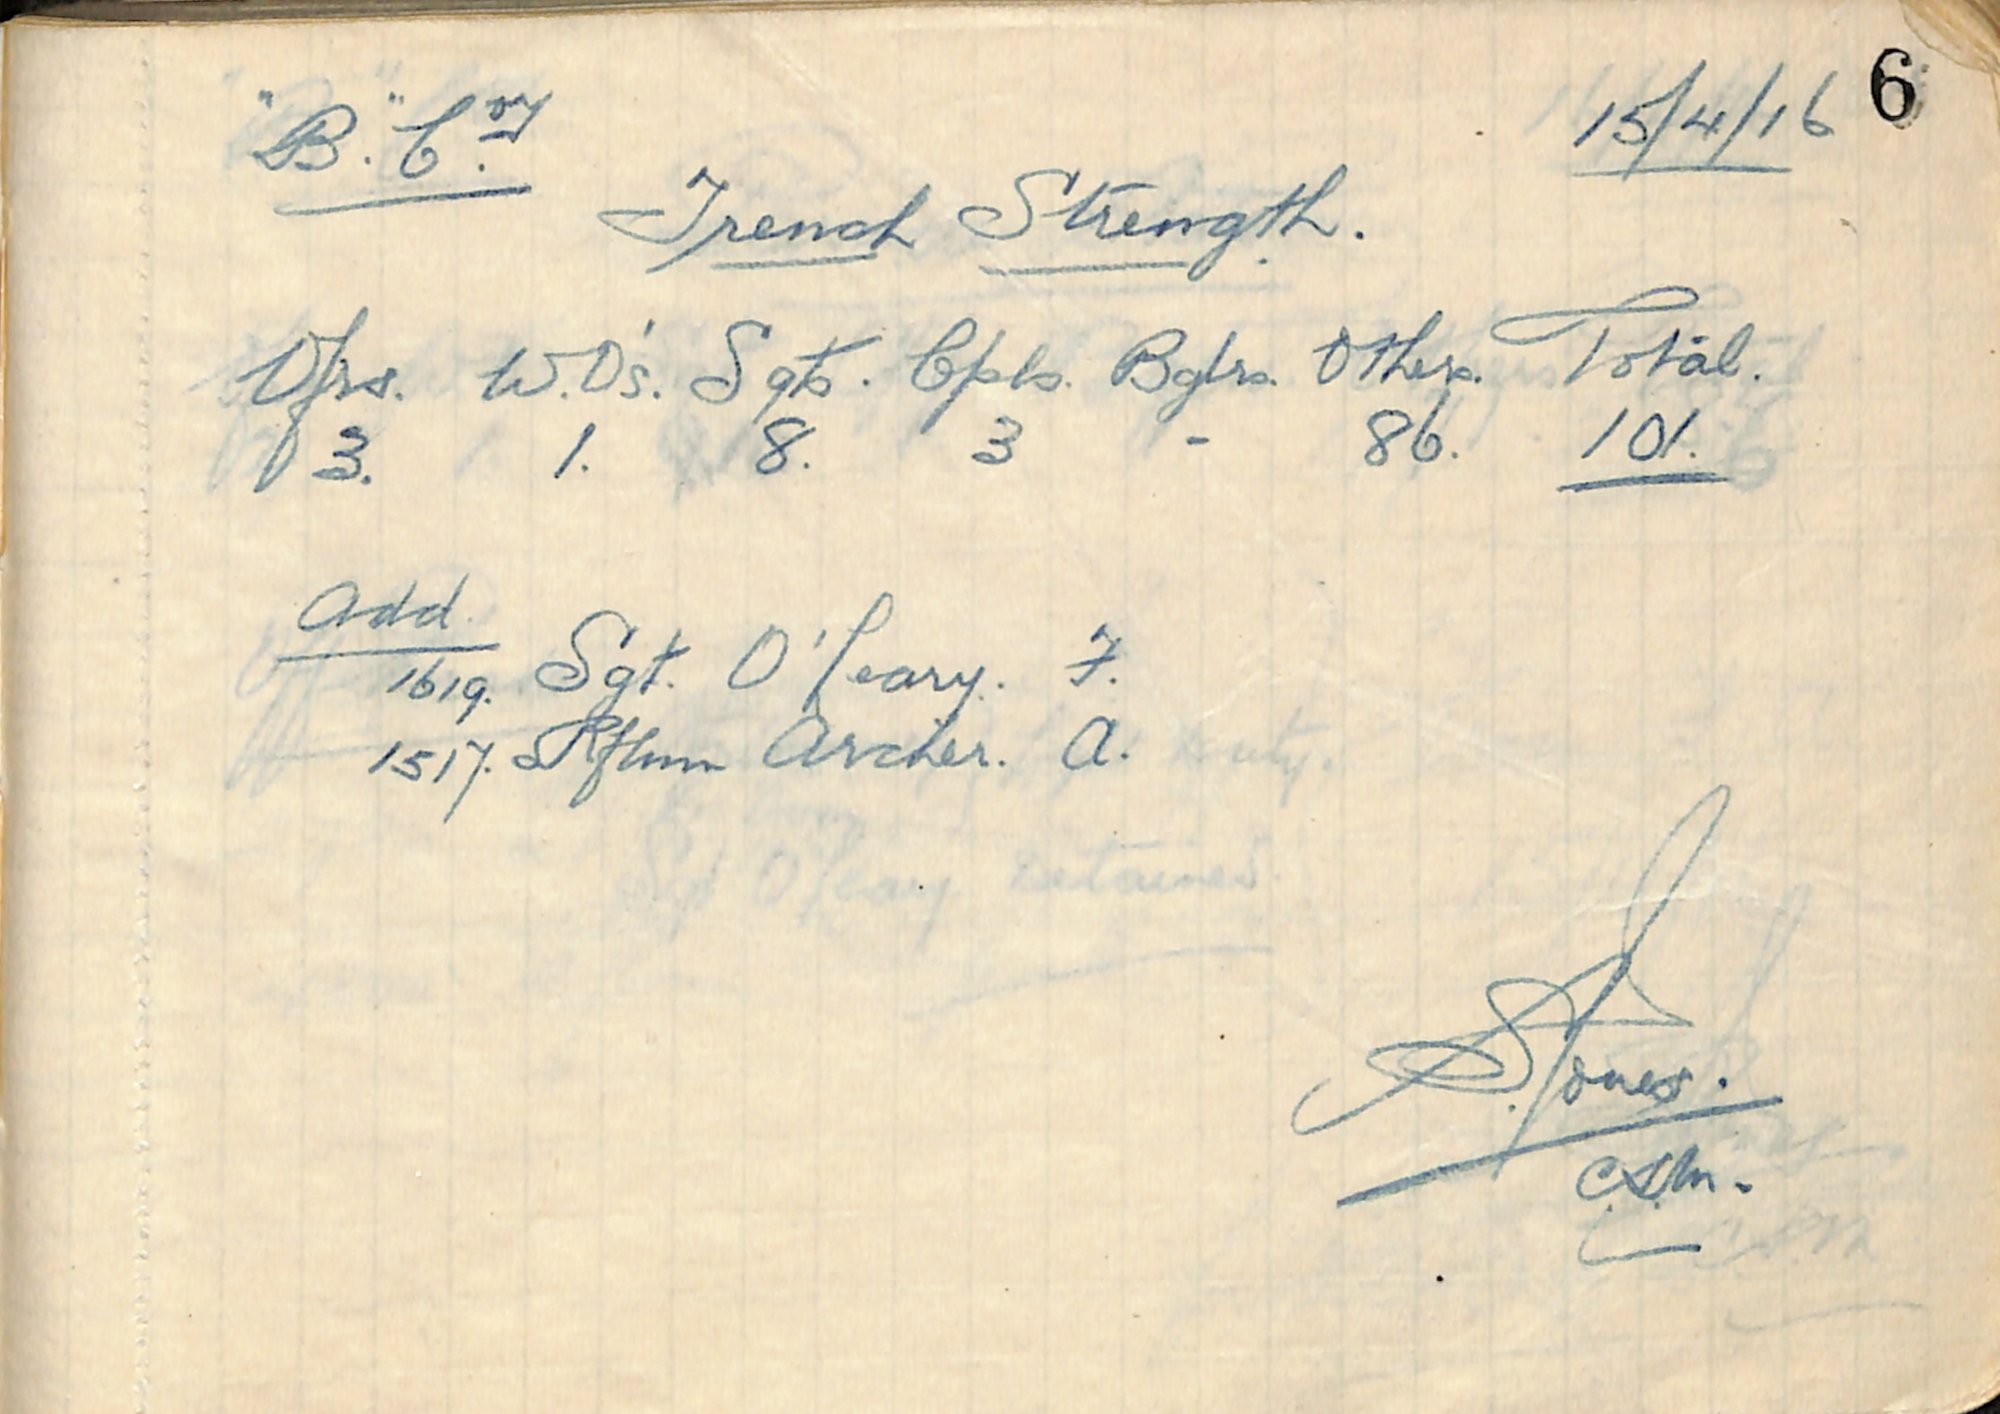 6
"B." Coy. 15/4/16
Trench Strength.
Ofrs. W.O's. Sgts. Cpls. Bglrs. Others. Total.
3. 1. 8. 3 - 86. 101.
Add.
1619. Sgt. O'Leary. F.
1517. Rflmn Archer. A.
Sgt O'Leary retained
S. Jones.
C.S.M.